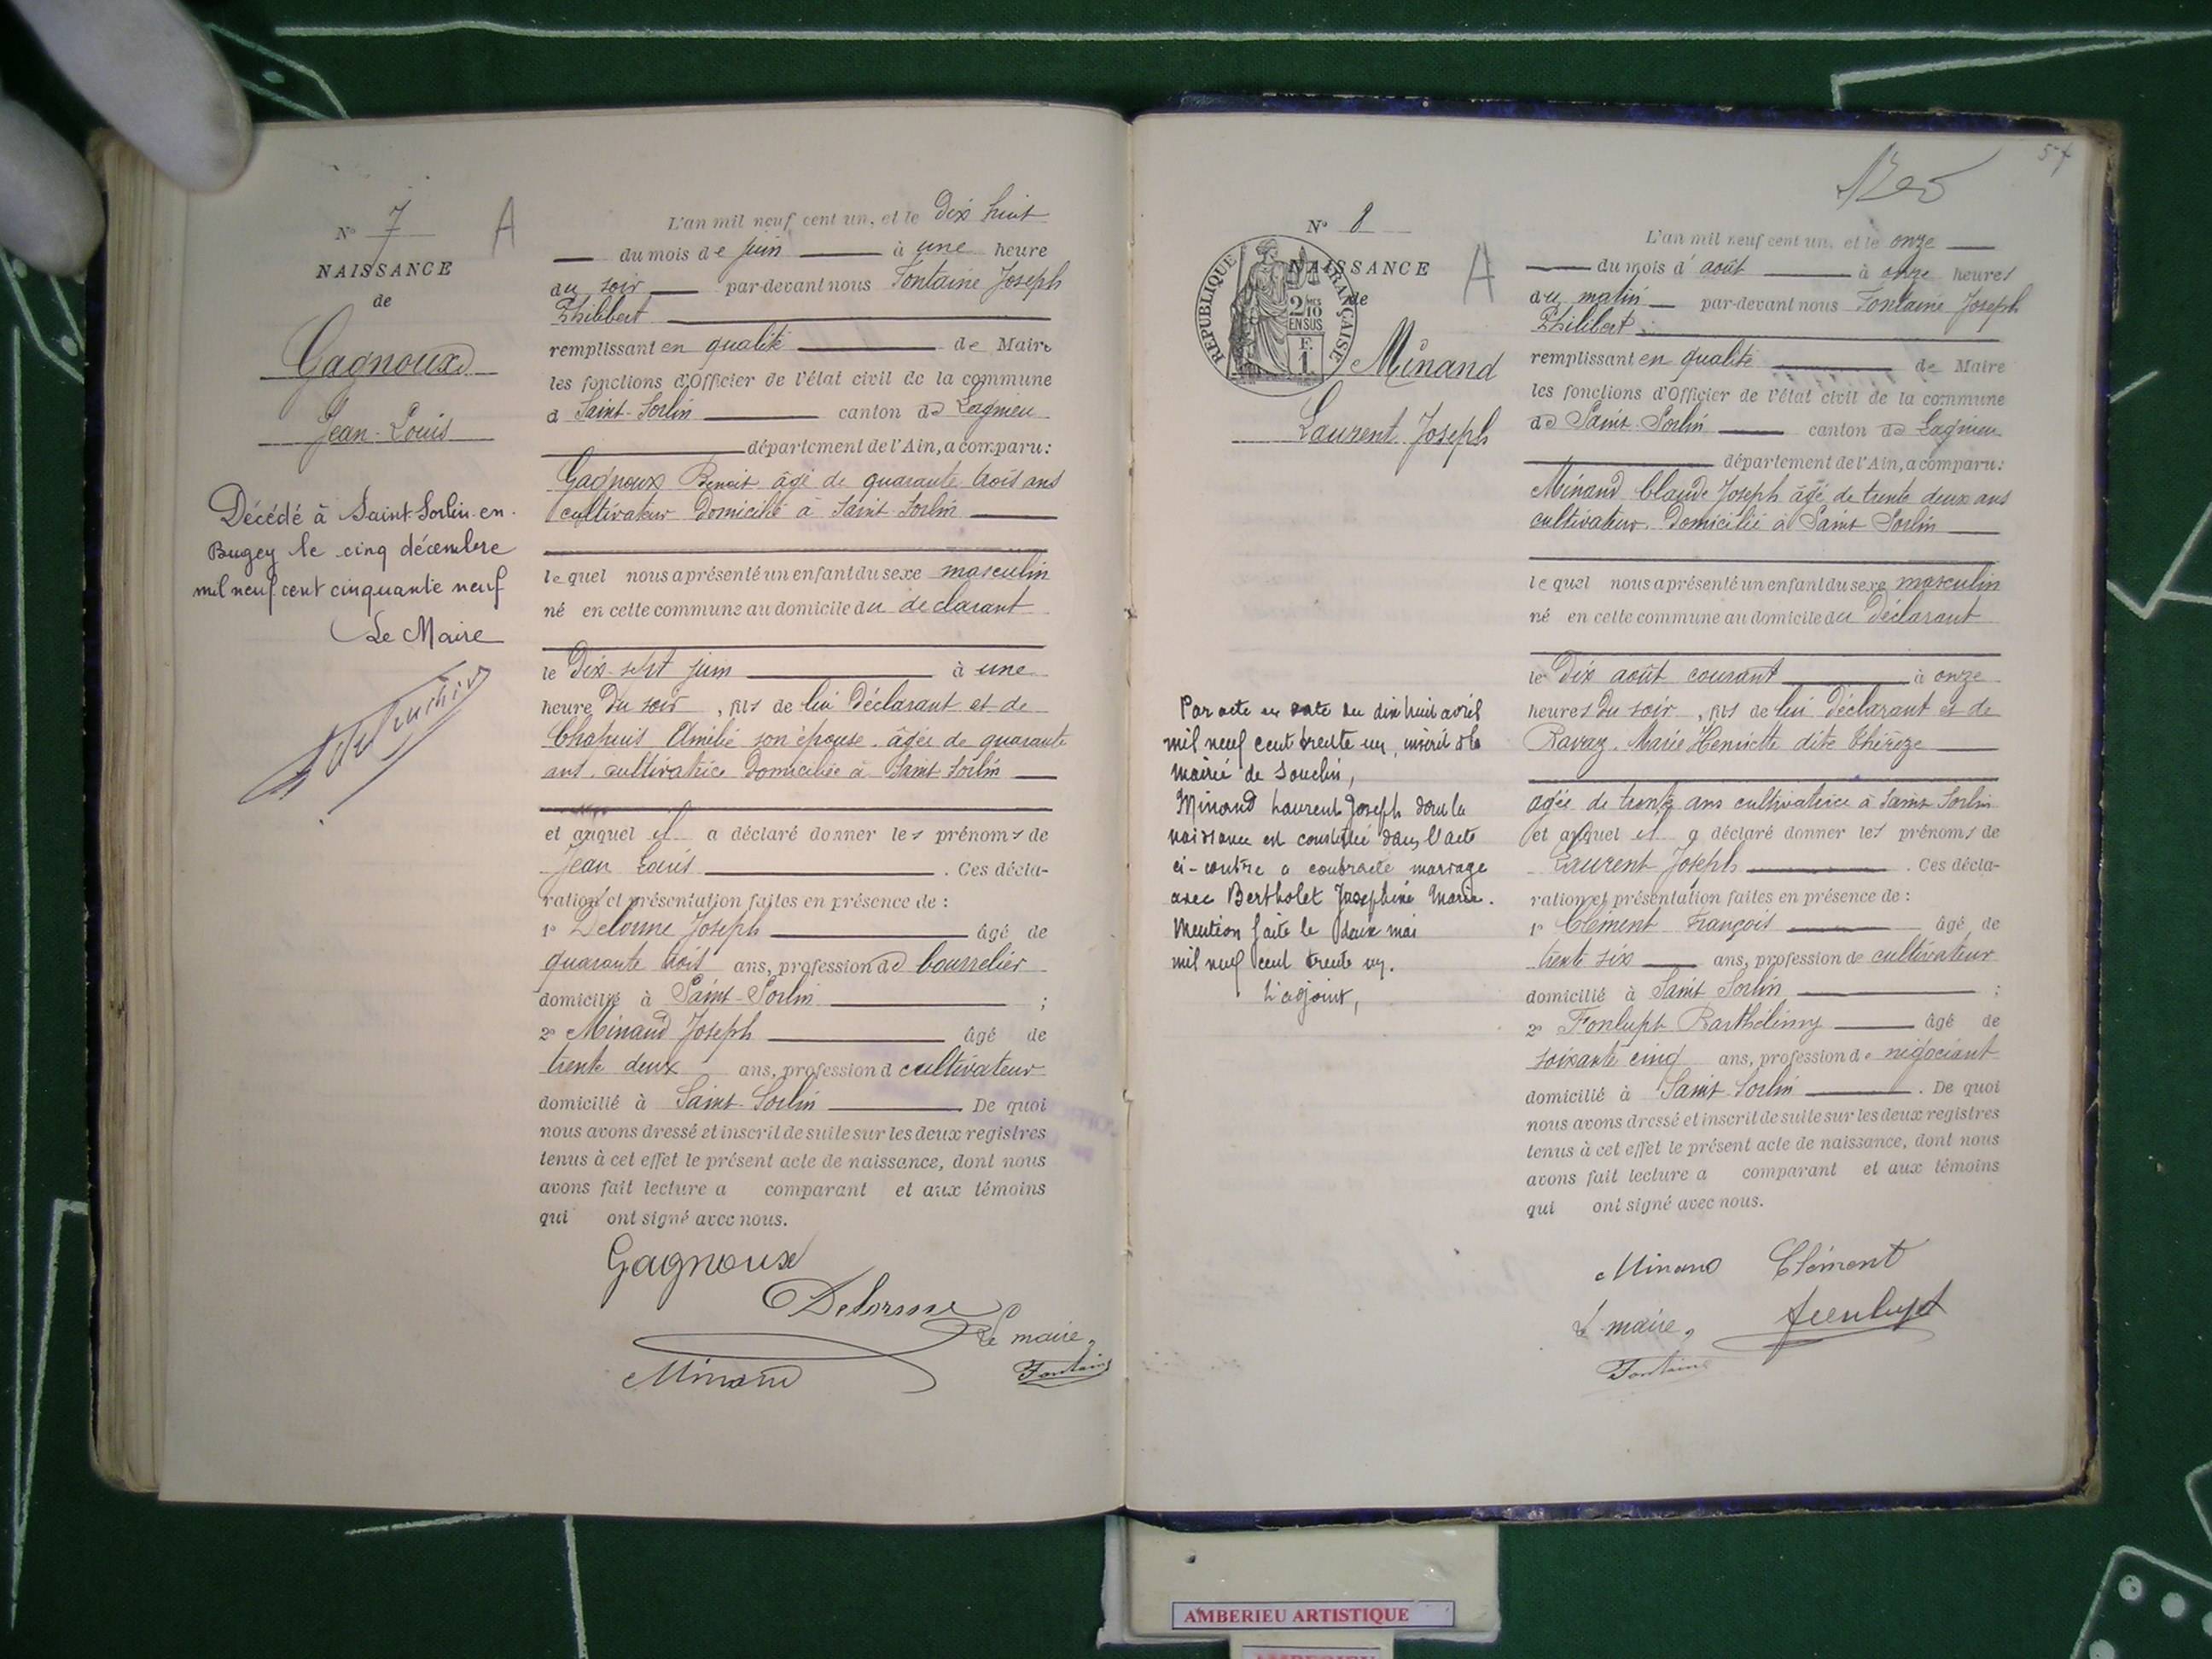 N° 7
A
NAISSANCE
de
Gagnoux
Jean-Louis
Décédé à Saint-Sorlin-en-
Bugey le cinq décembre
mil neuf cent cinquante neuf
Le Maire
L'an mil neuf cent un, et le Dix huit
du mois de juin à une heure
du soir par-devant nous Fontaine Joseph
Philibert
remplissant en qualité de Maire
les fonctions d'Officier de l'état civil de la commune
d Saint-Sorlin canton de Lagnieu
département de l'Ain, a comparu:
Gagnoux Benoit âgé de quarante trois ans
cultivateur domicilié à Saint Sorlin
lequel nous a présenté un enfant du sexe masculin
né en cette commune au domicile du déclarant
le Dix-sept juin à une
heure du soir, fils de lui Déclarant et de
Chapuis Emilie son épouse âgée de quarante
ans cultivatrice domiciliée à Saint Sorlin
et auquel il a déclaré donner les prénoms de
Jean Louis. Ces décla-
ration et présentation faites en présence de :
1° Delorme Joseph âgé de
quarante trois ans, profession de bourrelier
domicilié à Saint-Sorlin ;
2° Minand Joseph âgé de
trente deux ans, profession d cultivateur
domicilié à Saint-Sorlin. De quoi
nous avons dressé et inscrit de suite sur les deux registres
tenus à cet effet le présent acte de naissance, dont nous
avons fait lecture a comparant et aux témoins
qui ont signé avec nous.
Gagnoux
Delorme
Le maire,
Minand
Fontaine
57
N° 8
A
RÉPUBLIQUE FRANÇAISE
2/10 EN SUS
F. 1
NAISSANCE
de
Minand
Laurent Joseph
Par acte en date du dix huit avril
mil neuf cent trente un, inscrit à la
mairie de Souclin,
Minand Laurent Joseph dont la
naissance est constatée dans l'acte
ci-contre a contracté mariage
avec Bertholet Joséphine Marie.
Mention faite le deux mai
mil neuf cent trente un.
L'adjoint,
L'an mil neuf cent un, et le onze
du mois d'août à onze heures
du matin par-devant nous Fontaine Joseph
Philibert
remplissant en qualité de Maire
les fonctions d'Officier de l'état civil de la commune
de Saint-Sorlin canton de Lagnieu
département de l'Ain, a comparu:
Minand Claude Joseph âgé de trente deux ans
cultivateur domicilié à Saint Sorlin
lequel nous a présenté un enfant du sexe masculin
né en cette commune au domicile du Déclarant
le Dix août courant à onze
heures du soir, fils de lui déclarant et de
Ravaz Marie Henriette dite Thérèze
agée de trente ans cultivatrice à Saint Sorlin
et auquel il a déclaré donner les prénoms de
Laurent Joseph. Ces décla-
ration et présentation faites en présence de :
1° Clément François âgé de
trente six ans, profession de cultivateur
domicilié à Saint Sorlin ;
2° Fonlupt Barthélémy âgé de
soixante cinq ans, profession de négociant
domicilié à Saint Sorlin. De quoi
nous avons dressé et inscrit de suite sur les deux registres
tenus à cet effet le présent acte de naissance, dont nous
avons fait lecture a comparant et aux témoins
qui ont signé avec nous.
Minand Clément
Le maire, Fonlupt
Fontaine
AMBERIEU ARTISTIQUE